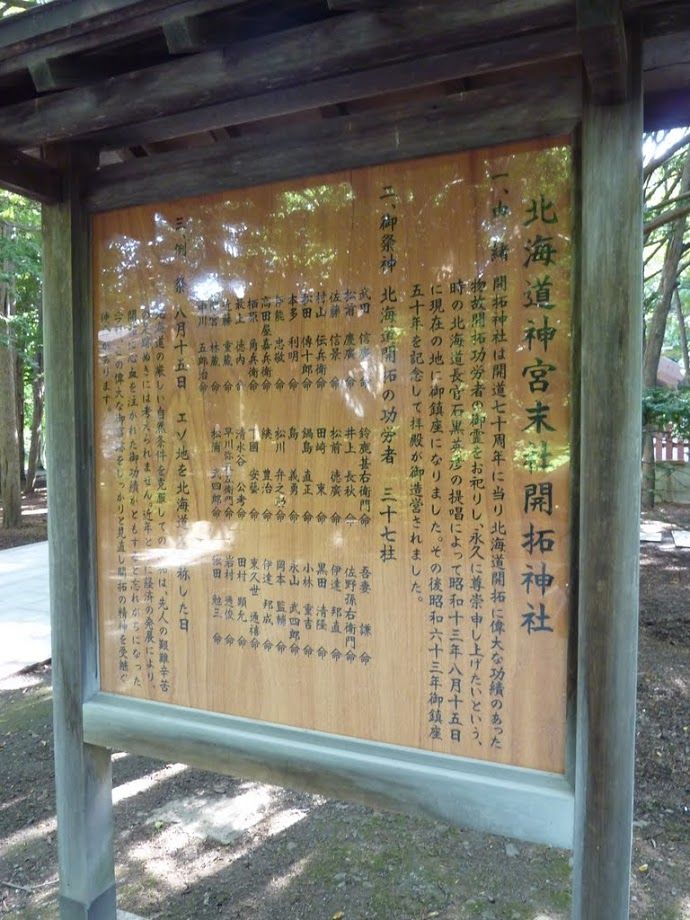 北海道神宮末社開拓神社
一、由緒 開拓神社は開道七十周年に当り北海道開拓に偉大な功績のあった
物故開拓功労者の御霊をお祀りし、永久に尊崇申し上げたいという、
時の北海道長官石黒英彦の提唱によって昭和十三年八月十五日
に現在の地に御鎮座になりました。その後昭和六十三年御鎮座
五十年を記念して拝殿が御造営されました。
二、御祭神 北海道開拓の功労者 三十七柱
武田 信廣 命 鈴鹿甚右衛門 命 吾妻 謙 命
松前 慶廣 命 井上 長秋 命 佐野孫右衛門 命
佐藤 信景 命 松前 徳廣 命 伊達 邦直 命
村山 伝兵衛 命 田崎 東 命 黒田 清隆 命
松田 傳十郎 命 鍋島 直正 命 小林 重吉 命
本多 利明 命 島 義勇 命 永山 武四郎 命
伊能 忠敬 命 松川 弁之助 命 岡本 監輔 命
高田屋嘉兵衛 命 続 豊治 命 伊達 邦成 命
栖原 角兵衛 命 下國 安藝 命 東久世 通禧 命
最上 徳内 命 清水谷 公考 命 田村 顕允 命
近藤 重蔵 命 早川 弥五左衛門 命 岩村 通俊 命
間宮 林蔵 命 松浦 武四郎 命 依田 勉三 命
中川 五郎治 命
三、例祭 八月十五日 エゾ地を北海道 称した日
北海道の厳しい自然条件を克服しての は、先人の艱難辛苦
の足跡ぬきには考えられません。近年と に経済の発展により、
開拓に心血を注がれた御功績がともすると忘れがちになった
今、この偉大な をしっかりと見直し開拓の精神を受継ぐ
あります。